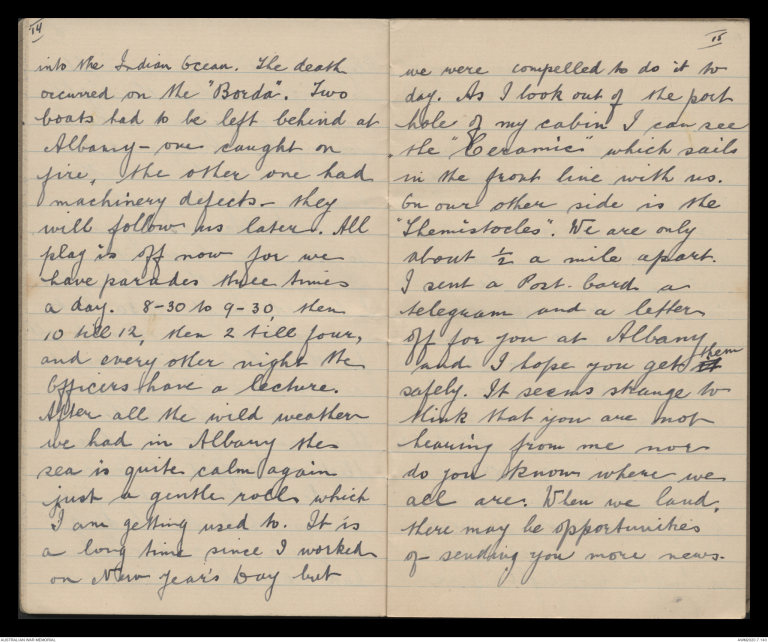 14
into the Indian Ocean. The death
occurred on the "Borda". Two
boats had to be left behind at
Albany - one caught on
fire, the other one had
machinery defects - they
will follow us later. All
play is off now for we
have parades three times
a day. 8-30 to 9-30, then
10 till 12, then 2 till four,
and every other night the
Officers have a lecture.
After all the wild weather
we had in Albany the
sea is quite calm again
just a gentle roll which
I am getting used to. It is
a long time since I worked
on New Year's Day but
15
we were compelled to do it to
day. As I look out of the port
hole of my cabin I can see
the "Ceramic" which sails
in the front line with us.
On our other side is the
"Themistocles". We are only
about ½ a mile apart.
I sent a Post-Card a
telegram and a letter
off for you at Albany
and I hope you get them
safely. It seems strange to
think that you are not
hearing from me nor
do you know where we
all are. When we land,
there may be opportunities
of sending you more news.
AUSTRALIAN WAR MEMORIAL